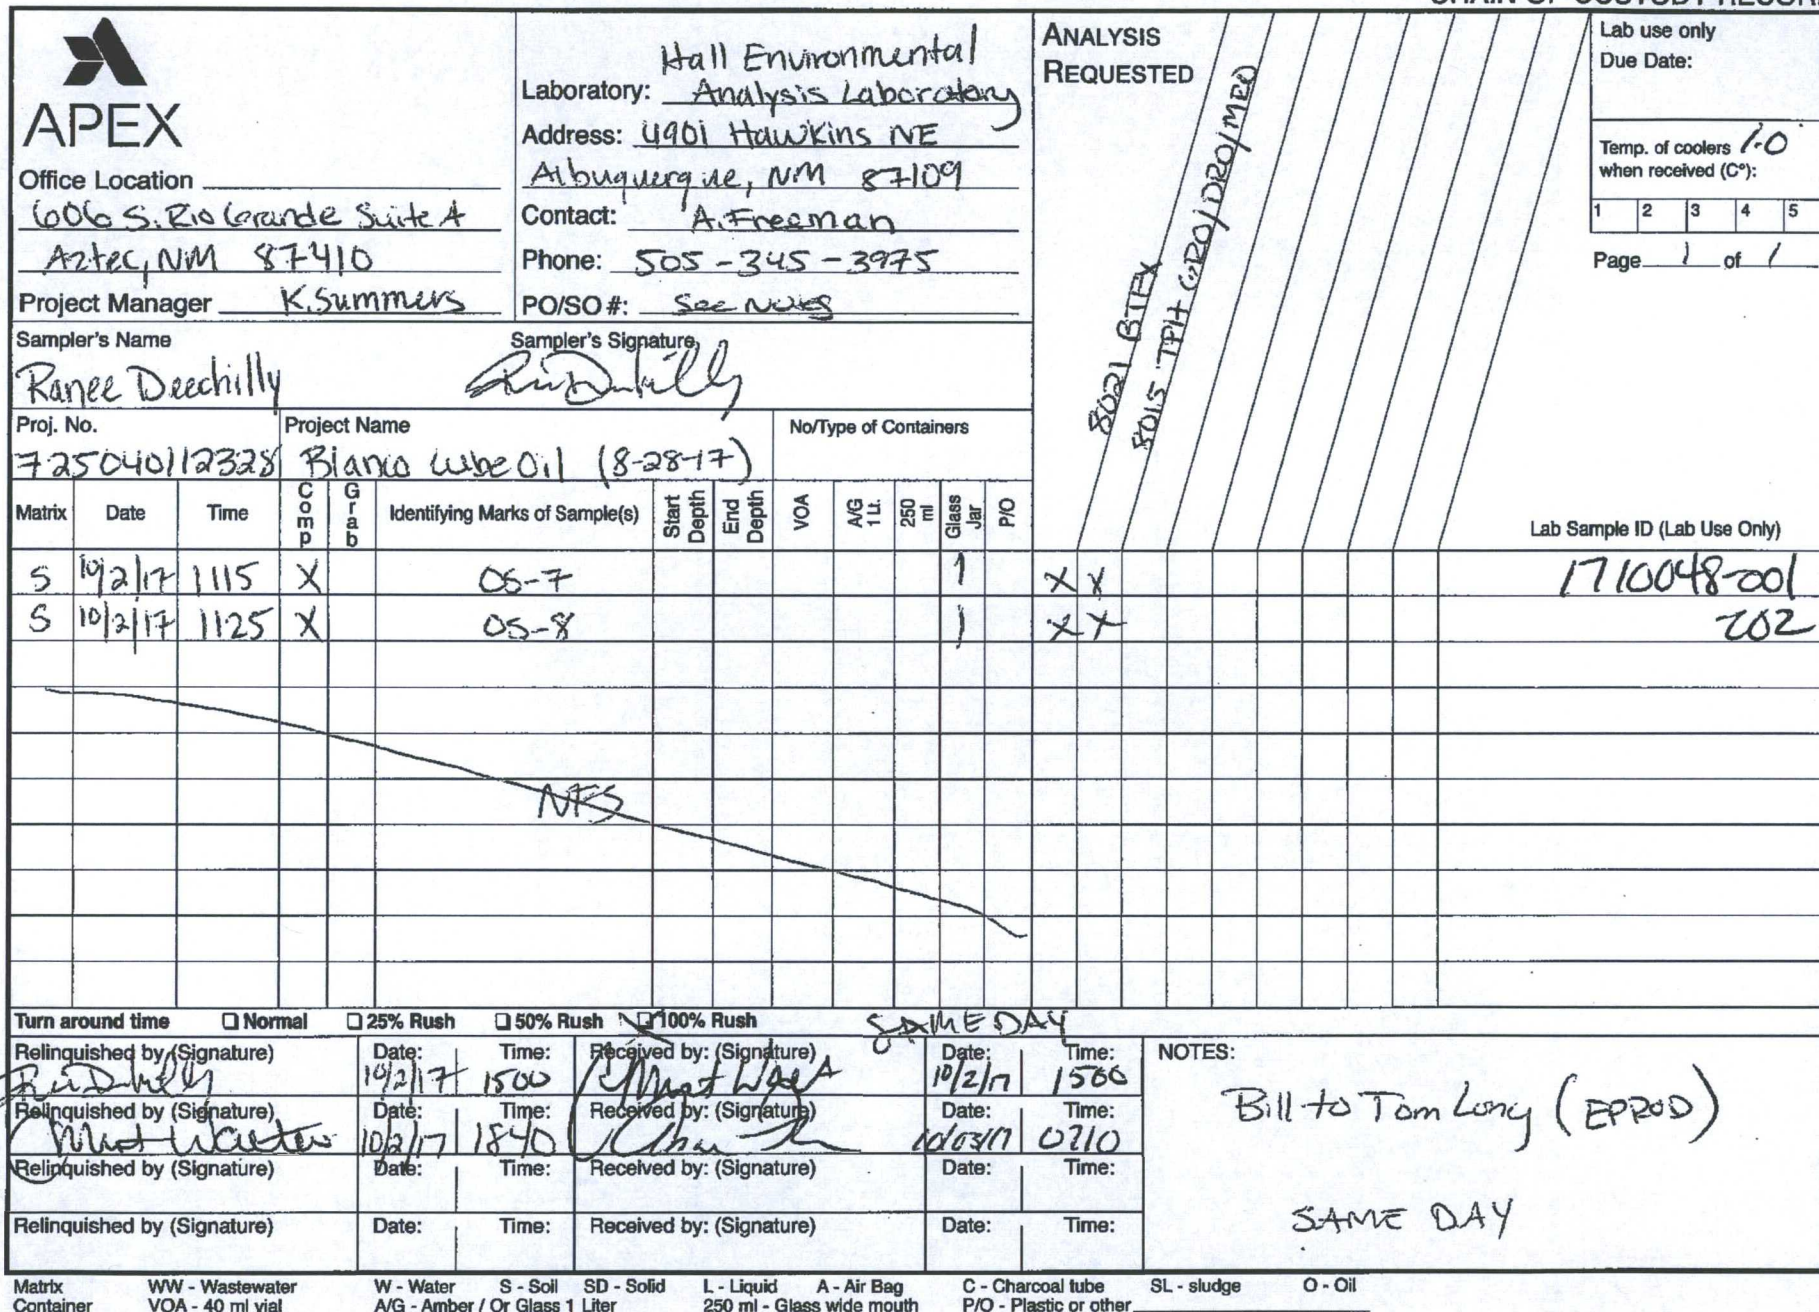 CHAIN OF CUSTODY RECORD
APEX
Office Location
606 S. Rio Grande Suite A
Aztec, NM 87410
Project Manager K. Summers
Hall Environmental
Laboratory: Analysis Laboratory
Address: 4901 Hawkins NE
Albuquerque, NM 87109
Contact: A. Freeman
Phone: 505-345-3975
PO/SO #: See Notes
ANALYSIS
REQUESTED
8021 BTEX
8015 TPH GRO/DRO/MRO
Lab use only
Due Date:
Temp. of coolers 1.0
when received (C°):
1 2 3 4 5
Page 1 of 1
Sampler's Name
Ranee Deechilly
Sampler's Signature
Proj. No.
725040112328
Project Name
Blanco Lube Oil (8-28-17)
No/Type of Containers
Matrix Date Time Comp Grab Identifying Marks of Sample(s) Start Depth End Depth VOA A/G 1 Lt. 250 ml Glass Jar P/O
Lab Sample ID (Lab Use Only)
S 10/2/17 1115 X OS-7 1 X X 1710048-001
S 10/2/17 1125 X OS-8 1 X X 202
NFS
Turn around time ☐ Normal ☐ 25% Rush ☐ 50% Rush ☐ 100% Rush SAME DAY
Relinquished by (Signature) Date: Time: Received by: (Signature) Date: Time:
10/2/17 1500 10/2/17 1500
Relinquished by (Signature) Date: Time: Received by: (Signature) Date: Time:
10/2/17 1840 10/03/17 0710
Relinquished by (Signature) Date: Time: Received by: (Signature) Date: Time:
Relinquished by (Signature) Date: Time: Received by: (Signature) Date: Time:
NOTES:
Bill to Tom Long (EPROD)
SAME DAY
Matrix WW - Wastewater W - Water S - Soil SD - Solid L - Liquid A - Air Bag C - Charcoal tube SL - sludge O - Oil
Container VOA - 40 ml vial A/G - Amber / Or Glass 1 Liter 250 ml - Glass wide mouth P/O - Plastic or other